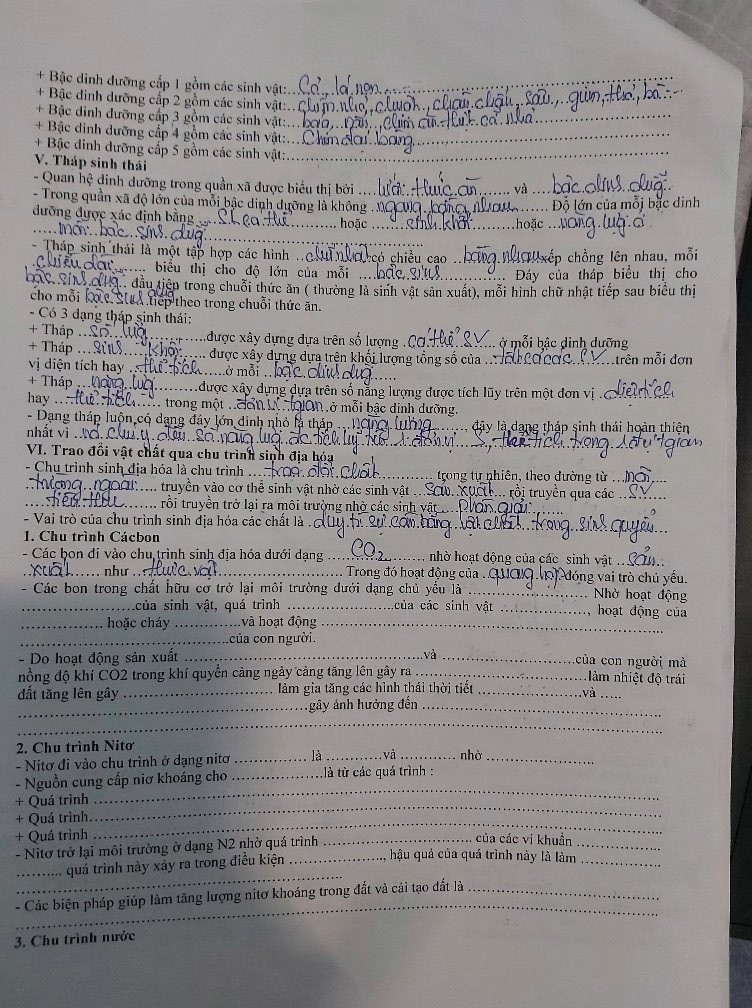 + Bậc dinh dưỡng cấp 1 gồm các sinh vật: Cỏ, lá non
+ Bậc dinh dưỡng cấp 2 gồm các sinh vật: chim nhỏ, chuột, châu chấu, sâu, giun, thỏ, bò
+ Bậc dinh dưỡng cấp 3 gồm các sinh vật: báo, rắn, chim ăn thịt cỡ nhỏ
+ Bậc dinh dưỡng cấp 4 gồm các sinh vật: Chim đại bàng
+ Bậc dinh dưỡng cấp 5 gồm các sinh vật:
V. Tháp sinh thái
- Quan hệ dinh dưỡng trong quần xã được biểu thị bởi lưới thức ăn và bậc dinh dưỡng
- Trong quần xã độ lớn của mỗi bậc dinh dưỡng là không ngang bằng nhau Độ lớn của mỗi bậc dinh
dưỡng được xác định bằng SL cá thể hoặc sinh khối hoặc năng lượng ở
mỗi bậc sinh dưỡng
- Tháp sinh thái là một tập hợp các hình chữ nhật có chiều cao bằng nhau xếp chồng lên nhau, mỗi
chiều dài biểu thị cho độ lớn của mỗi bậc sinh Đáy của tháp biểu thị cho
bậc sinh dưỡng đầu tiên trong chuỗi thức ăn ( thường là sinh vật sản xuất), mỗi hình chữ nhật tiếp sau biểu thị
cho mỗi bậc sinh dưỡng tiếp theo trong chuỗi thức ăn.
- Có 3 dạng tháp sinh thái:
+ Tháp số lượng được xây dựng dựa trên số lượng cá thể SV ở mỗi bậc dinh dưỡng
+ Tháp sinh khối được xây dựng dựa trên khối lượng tổng số của tất cả các SV trên mỗi đơn
vị diện tích hay thể tích ở mỗi bậc dinh dưỡng
+ Tháp năng lượng được xây dựng dựa trên số năng lượng được tích lũy trên một đơn vị diện tích
hay thể tích trong một đơn vị tgian ở mỗi bậc dinh dưỡng.
- Dạng tháp luôn có dạng đáy lớn đỉnh nhỏ là tháp năng lượng đây là dạng tháp sinh thái hoàn thiện
nhất vì nó chú ý đến số năng lượng đc tích lũy trên 1 đơn vị S, thể tích trong 1 đơn vị tgian
VI. Trao đổi vật chất qua chu trình sinh địa hóa
- Chu trình sinh địa hóa là chu trình trao đổi chất trong tự nhiên, theo đường từ môi
trường ngoài truyền vào cơ thể sinh vật nhờ các sinh vật sản xuất rồi truyền qua các SV
tiêu thụ rồi truyền trở lại ra môi trường nhờ các sinh vật phân giải
- Vai trò của chu trình sinh địa hóa các chất là duy trì sự cân bằng vật chất trong sinh quyển
1. Chu trình Cácbon
- Các bon đi vào chu trình sinh địa hóa dưới dạng CO2 nhờ hoạt động của các sinh vật sản
xuất như thực vật Trong đó hoạt động của quang hợp đóng vai trò chủ yếu.
- Các bon trong chất hữu cơ trở lại môi trường dưới dạng chủ yếu là Nhờ hoạt động
của sinh vật, quá trình của các sinh vật , hoạt động của
hoặc cháy và hoạt động
của con người.
- Do hoạt động sản xuất và của con người mà
nồng độ khí CO2 trong khí quyển càng ngày càng tăng lên gây ra làm nhiệt độ trái
đất tăng lên gây làm gia tăng các hình thái thời tiết và
gây ảnh hưởng đến
2. Chu trình Nitơ
- Nitơ đi vào chu trình ở dạng nitơ là và nhờ
- Nguồn cung cấp niơ khoáng cho là từ các quá trình :
+ Quá trình
+ Quá trình
+ Quá trình
- Nitơ trở lại môi trường ở dạng N2 nhờ quá trình của các vi khuẩn
quá trình này xảy ra trong điều kiện , hậu quả của quá trình này là làm
- Các biện pháp giúp làm tăng lượng nitơ khoáng trong đất và cải tạo đất là
3. Chu trình nước